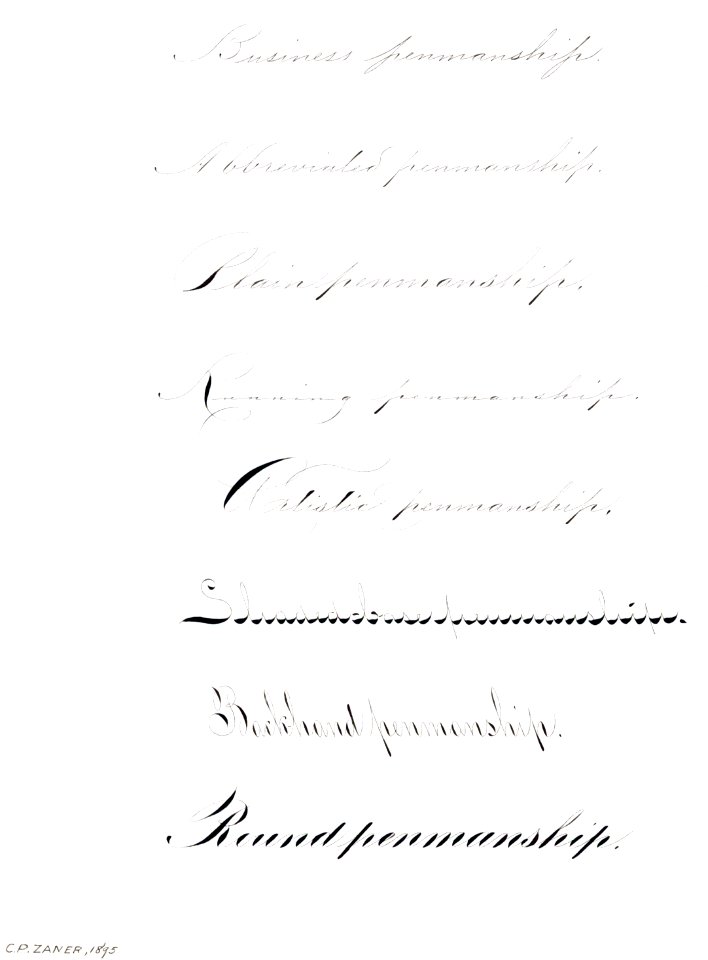 Business penmanship.
Abbreviated penmanship.
Plain penmanship.
Running penmanship.
Artistic penmanship.
Shaded base penmanship.
Backhand penmanship.
Round penmanship.
C.P. ZANER, 1895